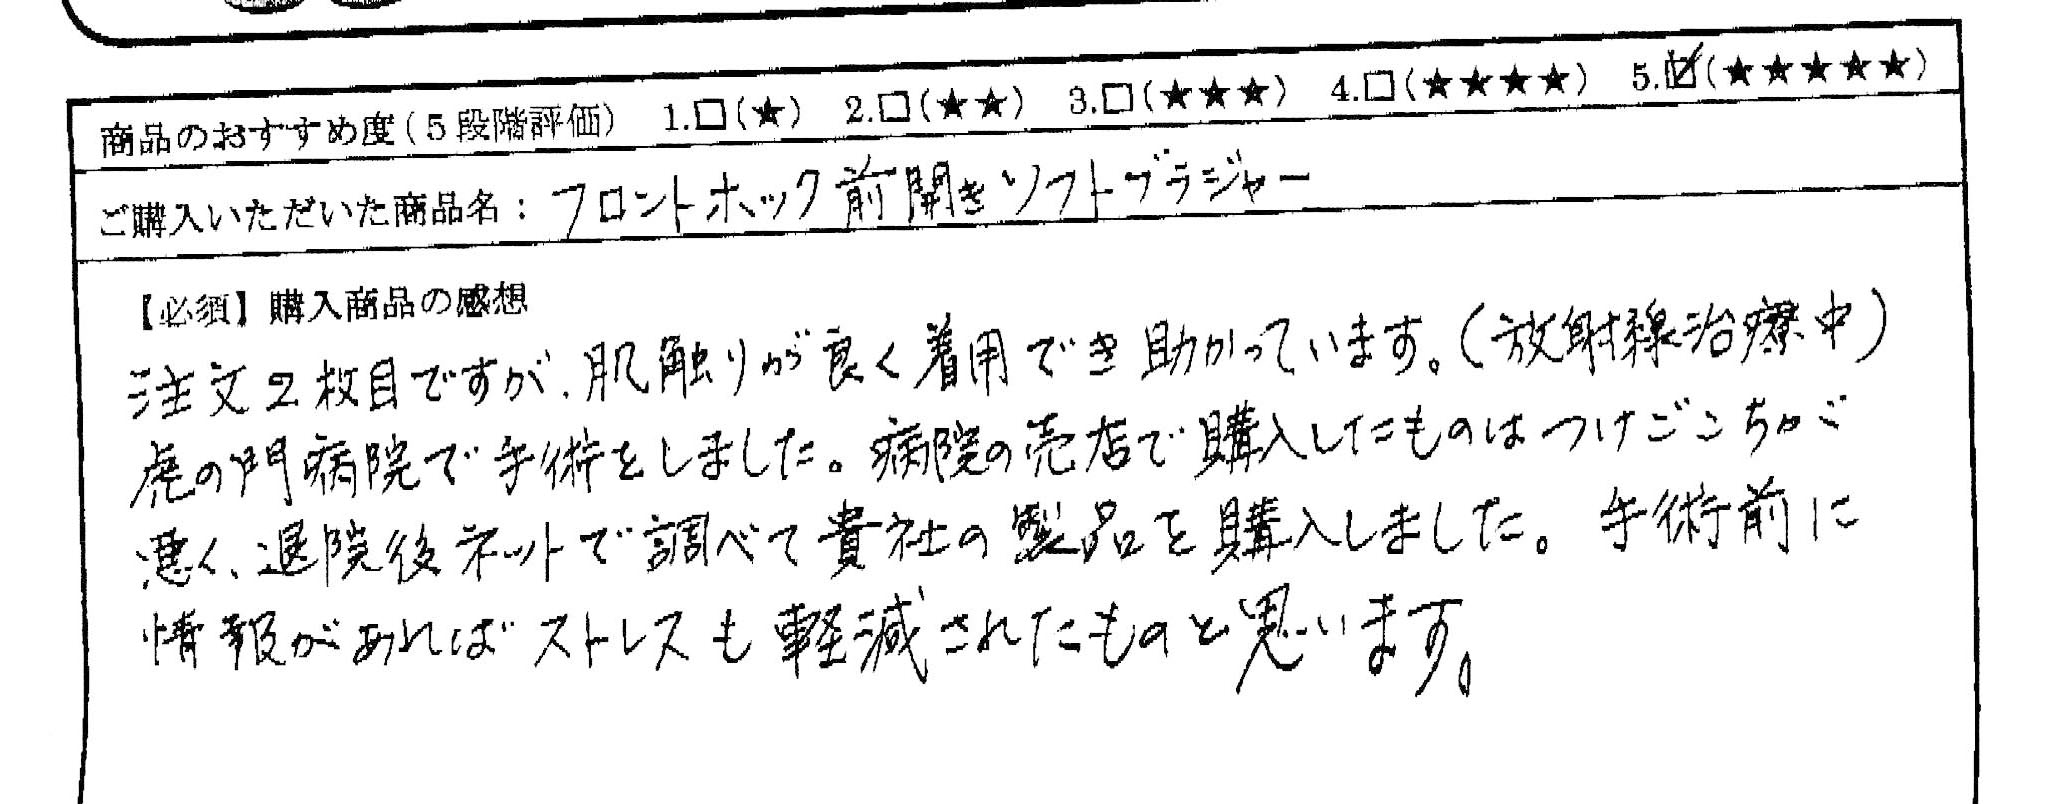 商品のおすすめ度(5段階評価) 1.□(★) 2.□(★★) 3.□(★★★) 4.□(★★★★) 5.☑(★★★★★)
ご購入いただいた商品名：フロントホック前開きソフトブラジャー
【必須】購入商品の感想
注文2枚目ですが、肌触りが良く着用でき助かっています。(放射線治療中)
虎の門病院で手術をしました。病院の売店で購入したものはつけごこちが
悪く、退院後ネットで調べて貴社の製品を購入しました。手術前に
情報があればストレスも軽減されたものと思います。